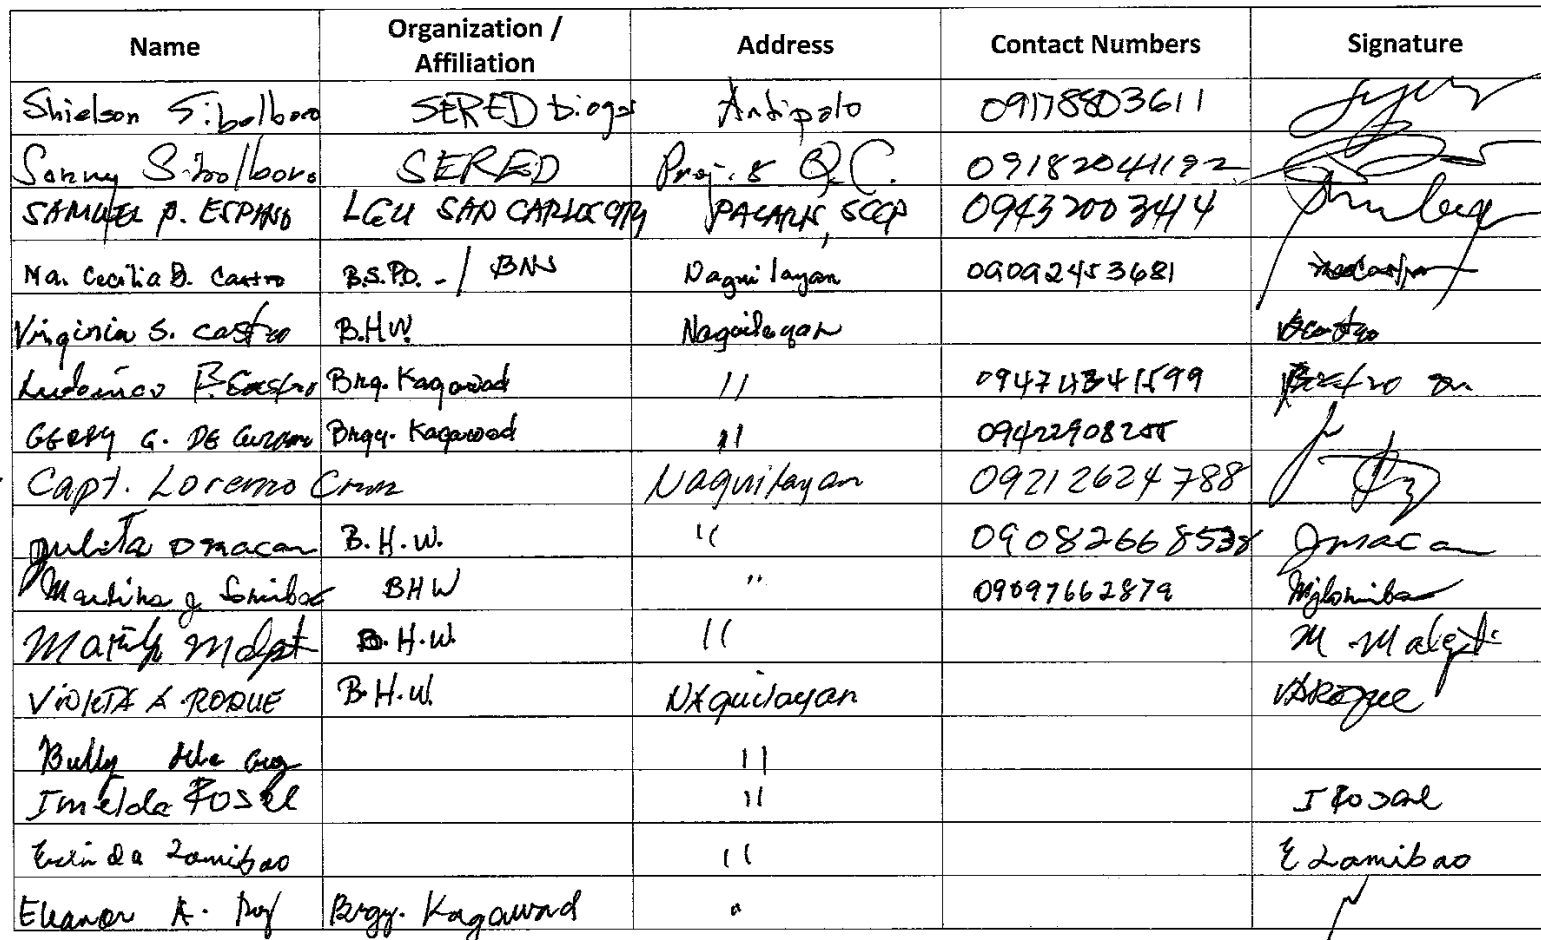 Name Organization / Affiliation Address Contact Numbers Signature
Shielson Sibolboro SERED Diogos Antipolo 09178803611
Sonny Sibolboro SERED Proj. 8 Q.C. 09182041192
SAMUEL P. ESPINO LGU SAN CARLOS CITY PALARIS, SCCP 09432003414
Ma. Cecilia B. Castro B.S.P.O. - / BNS Naguilayan 09092453681
Virginia S. Castro B.H.W. Naguilayan
Ludovico P. Castro Brg. Kagawad 〃 Castro
GERRY G. DE Guzman Brgy. Kagawad 〃
Capt. Lorenzo Cruz Naguilayan 09212624788
Julita Omacan B.H.W. 〃 Jmacan
Martina J Lomibao BHW 〃 09097662879 Mjlomibao
B.H.W. 〃 M
VIOLETA A ROQUE B.H.W. NAguilayan VARoque
Bully dela Cruz 〃
Imelda Rosal 〃 I Rosal
Zamibao 〃 E Zamibao
Eleanor A. Brgy. Kagawad 〃